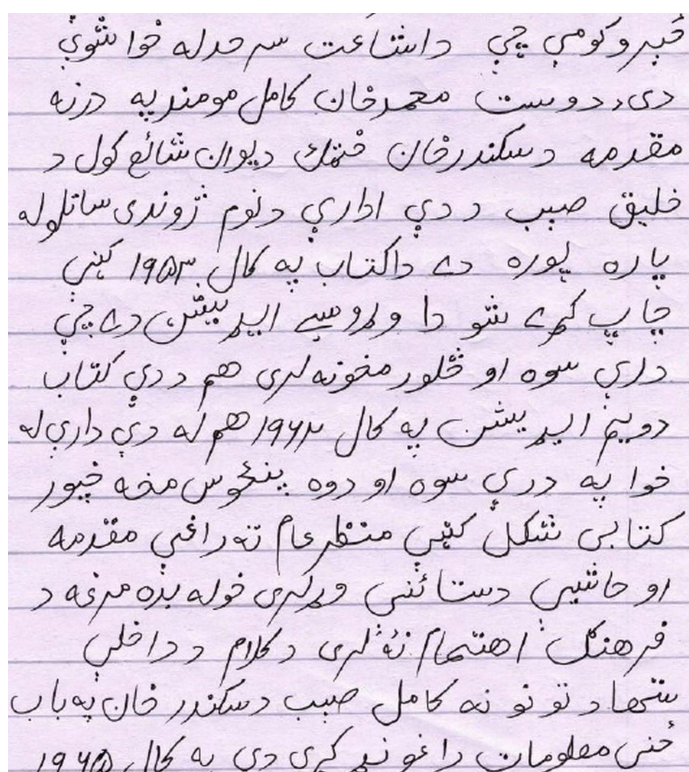 خپرو کومې چې داشاعت سرحدله خوا شوي
دي، دوست محمدخان کامل مومندپه درنه
مقدمه دسکندرخان خټک ديوان شائع کول د
خليق صيب د دې ادارې دنوم ژوندی ساتلوله
پاره پوره دے داکتاب په کال ۱۹۵۳ کښې
چاپ کړے شو دا وړومبے ايډيشن دے چې
درې سوه او څلور مخونه لری هم د دې کتاب
دويم ايډيشن په کال ۱۹۶۲ هم له دې دارې له
خوا په درې سوه او دوه پنځوس مخه خپور
کتابی شکل کښې منظرعام ته راغې مقدمه
او حاشيې دستائنې وړلری خوله بده مرغه د
فرهنګ اهتمام نۀ لری دکلام د داخلې
شهادتونو نه کامل صيب دسکندر خان په باب
ځنې معلومات راغونډ کړی دی په کال ۱۹۶۵